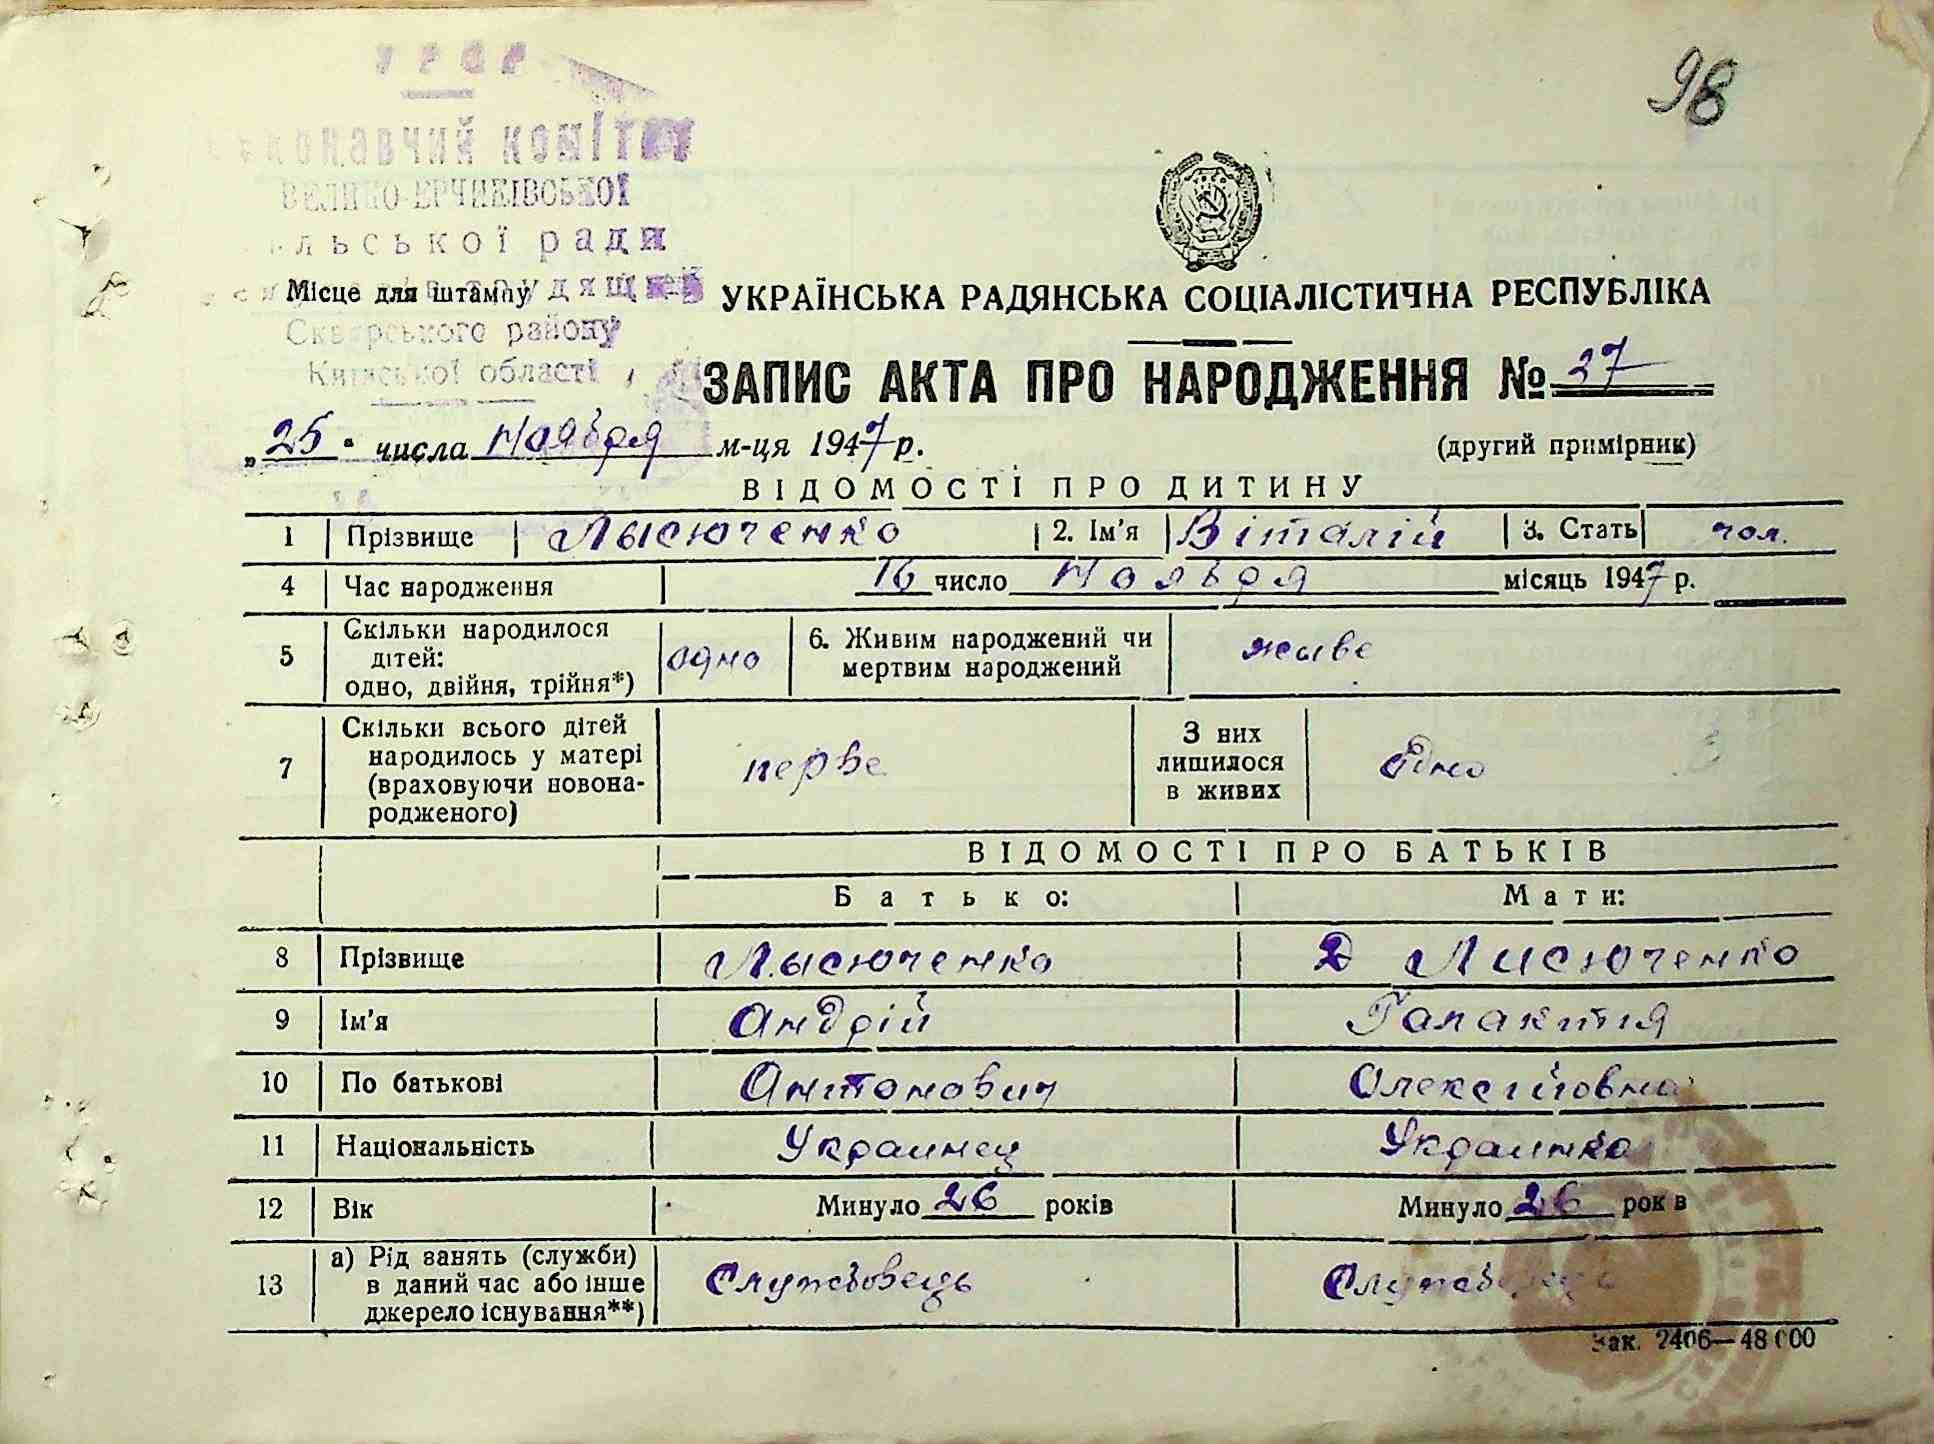 98
УРСР
виконавчий комітет
ВЕЛИКО-ЕРЧИКІВСЬКОЇ
сільської ради
депутатів трудящих
Місце для штампу
Сквирського району
Київської області
УКРАЇНСЬКА РАДЯНСЬКА СОЦІАЛІСТИЧНА РЕСПУБЛІКА
ЗАПИС АКТА ПРО НАРОДЖЕННЯ № 37
„25" числа Ноября м-ця 1947 р.
(другий примірник)
ВІДОМОСТІ ПРО ДИТИНУ
1 Прізвище Лысюченко 2. Ім'я Віталій 3. Стать чол.
4 Час народження 16 число Ноября місяць 1947 р.
5 Скільки народилося дітей: одно, двійня, трійня*) одно 6. Живим народжений чи мертвим народжений живе
7 Скільки всього дітей народилось у матері (враховуючи новонародженого) перве З них лишилося в живих Одно
ВІДОМОСТІ ПРО БАТЬКІВ
Батько: Мати:
8 Прізвище Лысюченко Лисюченко
9 Ім'я Андрій Галактія
10 По батькові Антонович Олексійовна
11 Національність Украинец Украинка
12 Вік Минуло 26 років Минуло 26 рок в
13 а) Рід занять (служби) в даний час або інше джерело існування**) Службовець Службовець
Зак. 2406—48 000